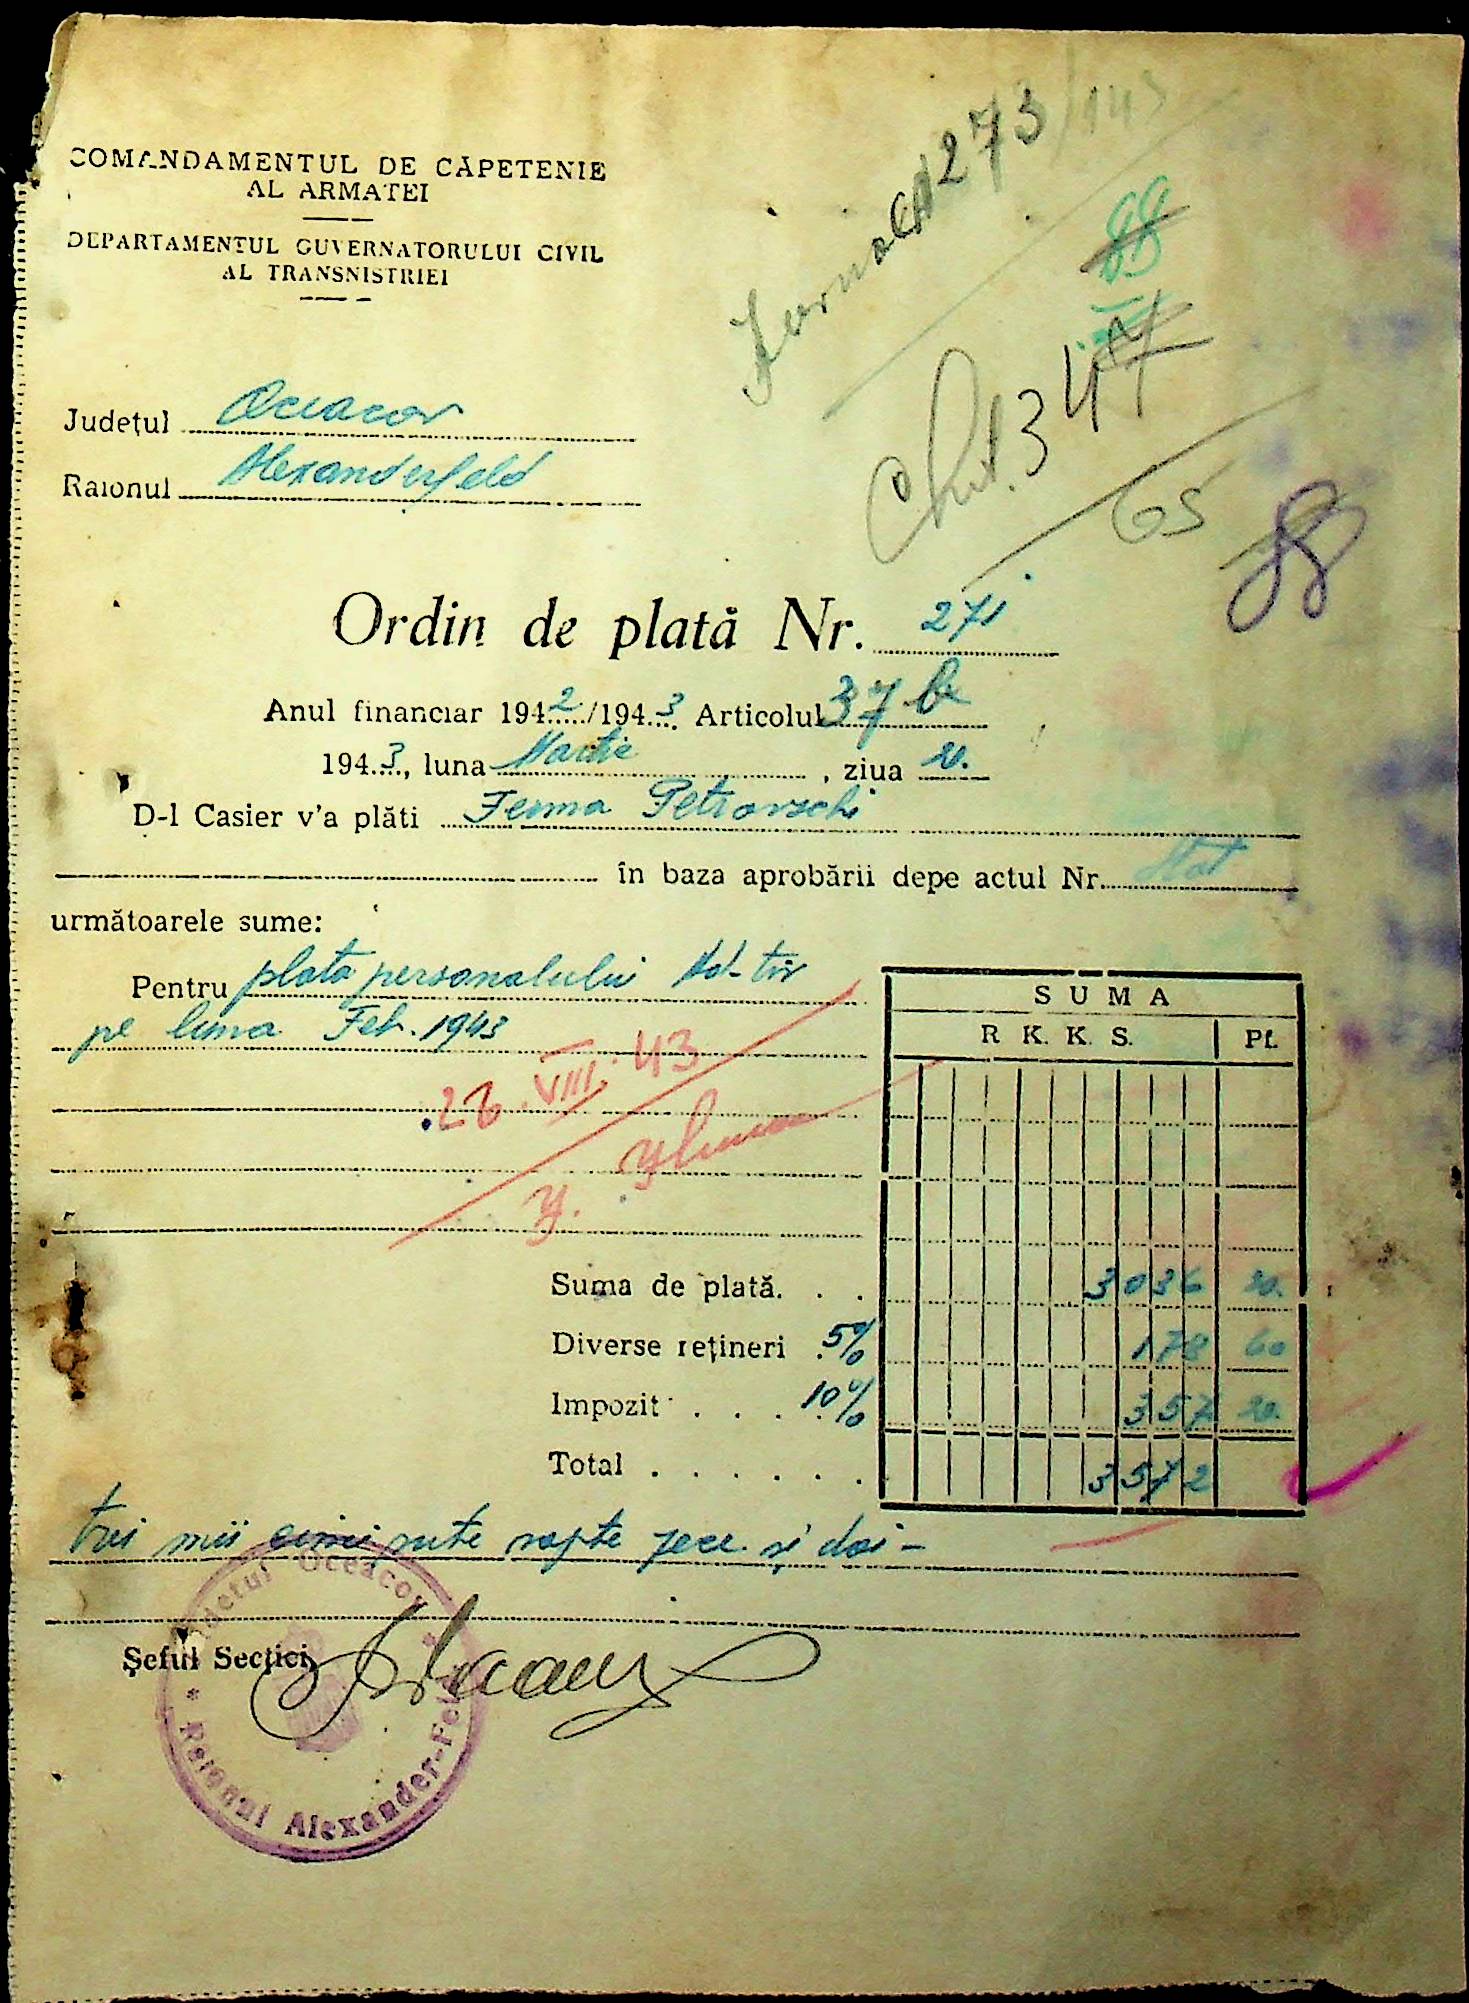 COMANDAMENTUL DE CĂPETENIE
AL ARMATEI
DEPARTAMENTUL GUVERNATORULUI CIVIL
AL TRANSNISTRIEI
Jurnal 273/143
88
Chit. 347
65
88
Județul Oceacov
Raionul Alexanderfeld
Ordin de plată Nr. 271
Anul financiar 1942/1943 Articolul 37 b
1943, luna Martie, ziua 20.
D-l Casier v'a plăti Ferma Petrovschi
în baza aprobării depe actul Nr. Stat
următoarele sume:
Pentru plata personalului Ad-tiv
pe luna Feb. 1943
SUMA
R. K. K. S. Pf.
26.VIII.43
Suma de plată. . . 3036 20.
Diverse rețineri 5% 178 60
Impozit . . . 10% 357 20.
Total . . . . . . 3572
trei mii cinci sute șapte zece și doi -
Șeful Secției,
Județul Oceacov * Raionul Alexander-Feld *